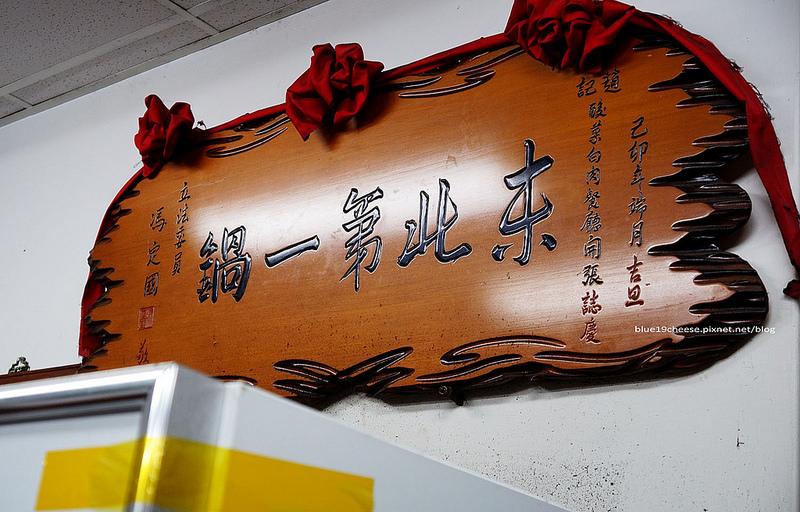 己卯年端月吉旦
趙記酸菜白肉餐廳開張誌慶
东北第一鍋
立法委員
馮定國
敬
blue19cheese.pixnet.net/blog